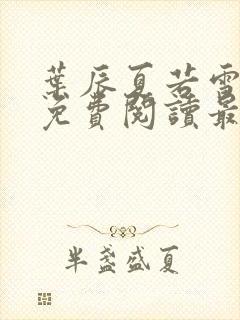 葉辰夏若雪
免費閱讀最
半盞盛夏